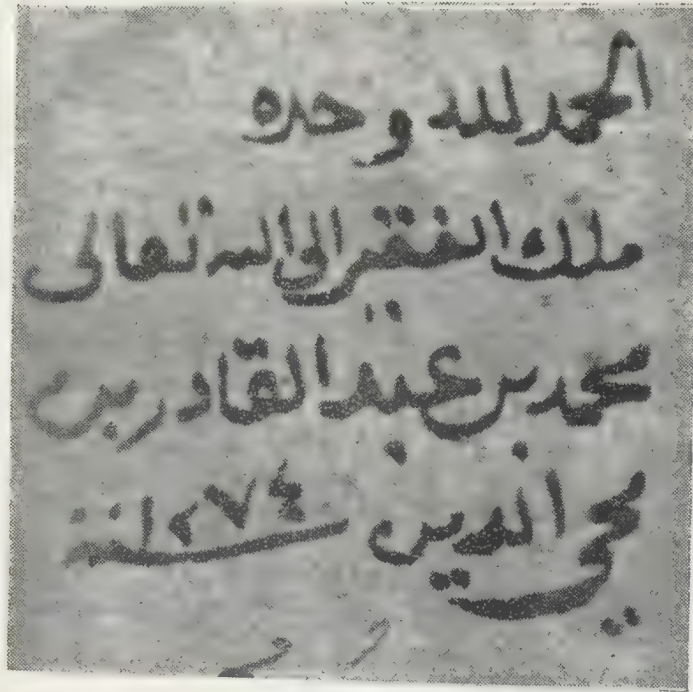 الحمد لله وحده
ملك الفقير الى الله تعالى
محمد بن عبد القادر بن
محي الدين سنة ١٢٧٤